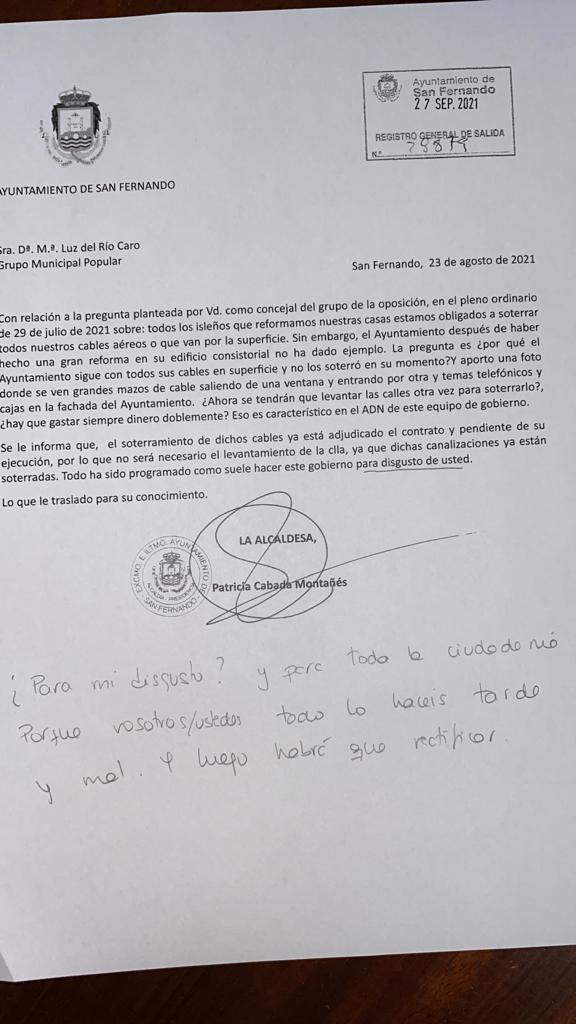 Ayuntamiento de
San Fernando
27 SEP. 2021
REGISTRO GENERAL DE SALIDA
N.º
AYUNTAMIENTO DE SAN FERNANDO
Sra. Dª. M.ª. Luz del Río Caro
Grupo Municipal Popular
San Fernando, 23 de agosto de 2021
Con relación a la pregunta planteada por Vd. como concejal del grupo de la oposición, en el pleno ordinario
de 29 de julio de 2021 sobre: todos los isleños que reformamos nuestras casas estamos obligados a soterrar
todos nuestros cables aéreos o que van por la superficie. Sin embargo, el Ayuntamiento después de haber
hecho una gran reforma en su edificio consistorial no ha dado ejemplo. La pregunta es ¿por qué el
Ayuntamiento sigue con todos sus cables en superficie y no los soterró en su momento?Y aporto una foto
donde se ven grandes mazos de cable saliendo de una ventana y entrando por otra y temas telefónicos y
cajas en la fachada del Ayuntamiento. ¿Ahora se tendrán que levantar las calles otra vez para soterrarlo?,
¿hay que gastar siempre dinero doblemente? Eso es característico en el ADN de este equipo de gobierno.
Se le informa que, el soterramiento de dichos cables ya está adjudicado el contrato y pendiente de su
ejecución, por lo que no será necesario el levantamiento de la clla, ya que dichas canalizaciones ya están
soterradas. Todo ha sido programado como suele hacer este gobierno para disgusto de usted.
Lo que le traslado para su conocimiento.
LA ALCALDESA,
EXCMO. E ILTMO. AYUNTAMIENTO DE
SAN FERNANDO
ALCALDÍA - PRESIDENCIA
Patricia Cabada Montañés
¿Para mi disgusto? y para toda la ciudadanía
Porque vosotros/ustedes todo lo haceis tarde
y mal. Y luego habrá que rectificar.